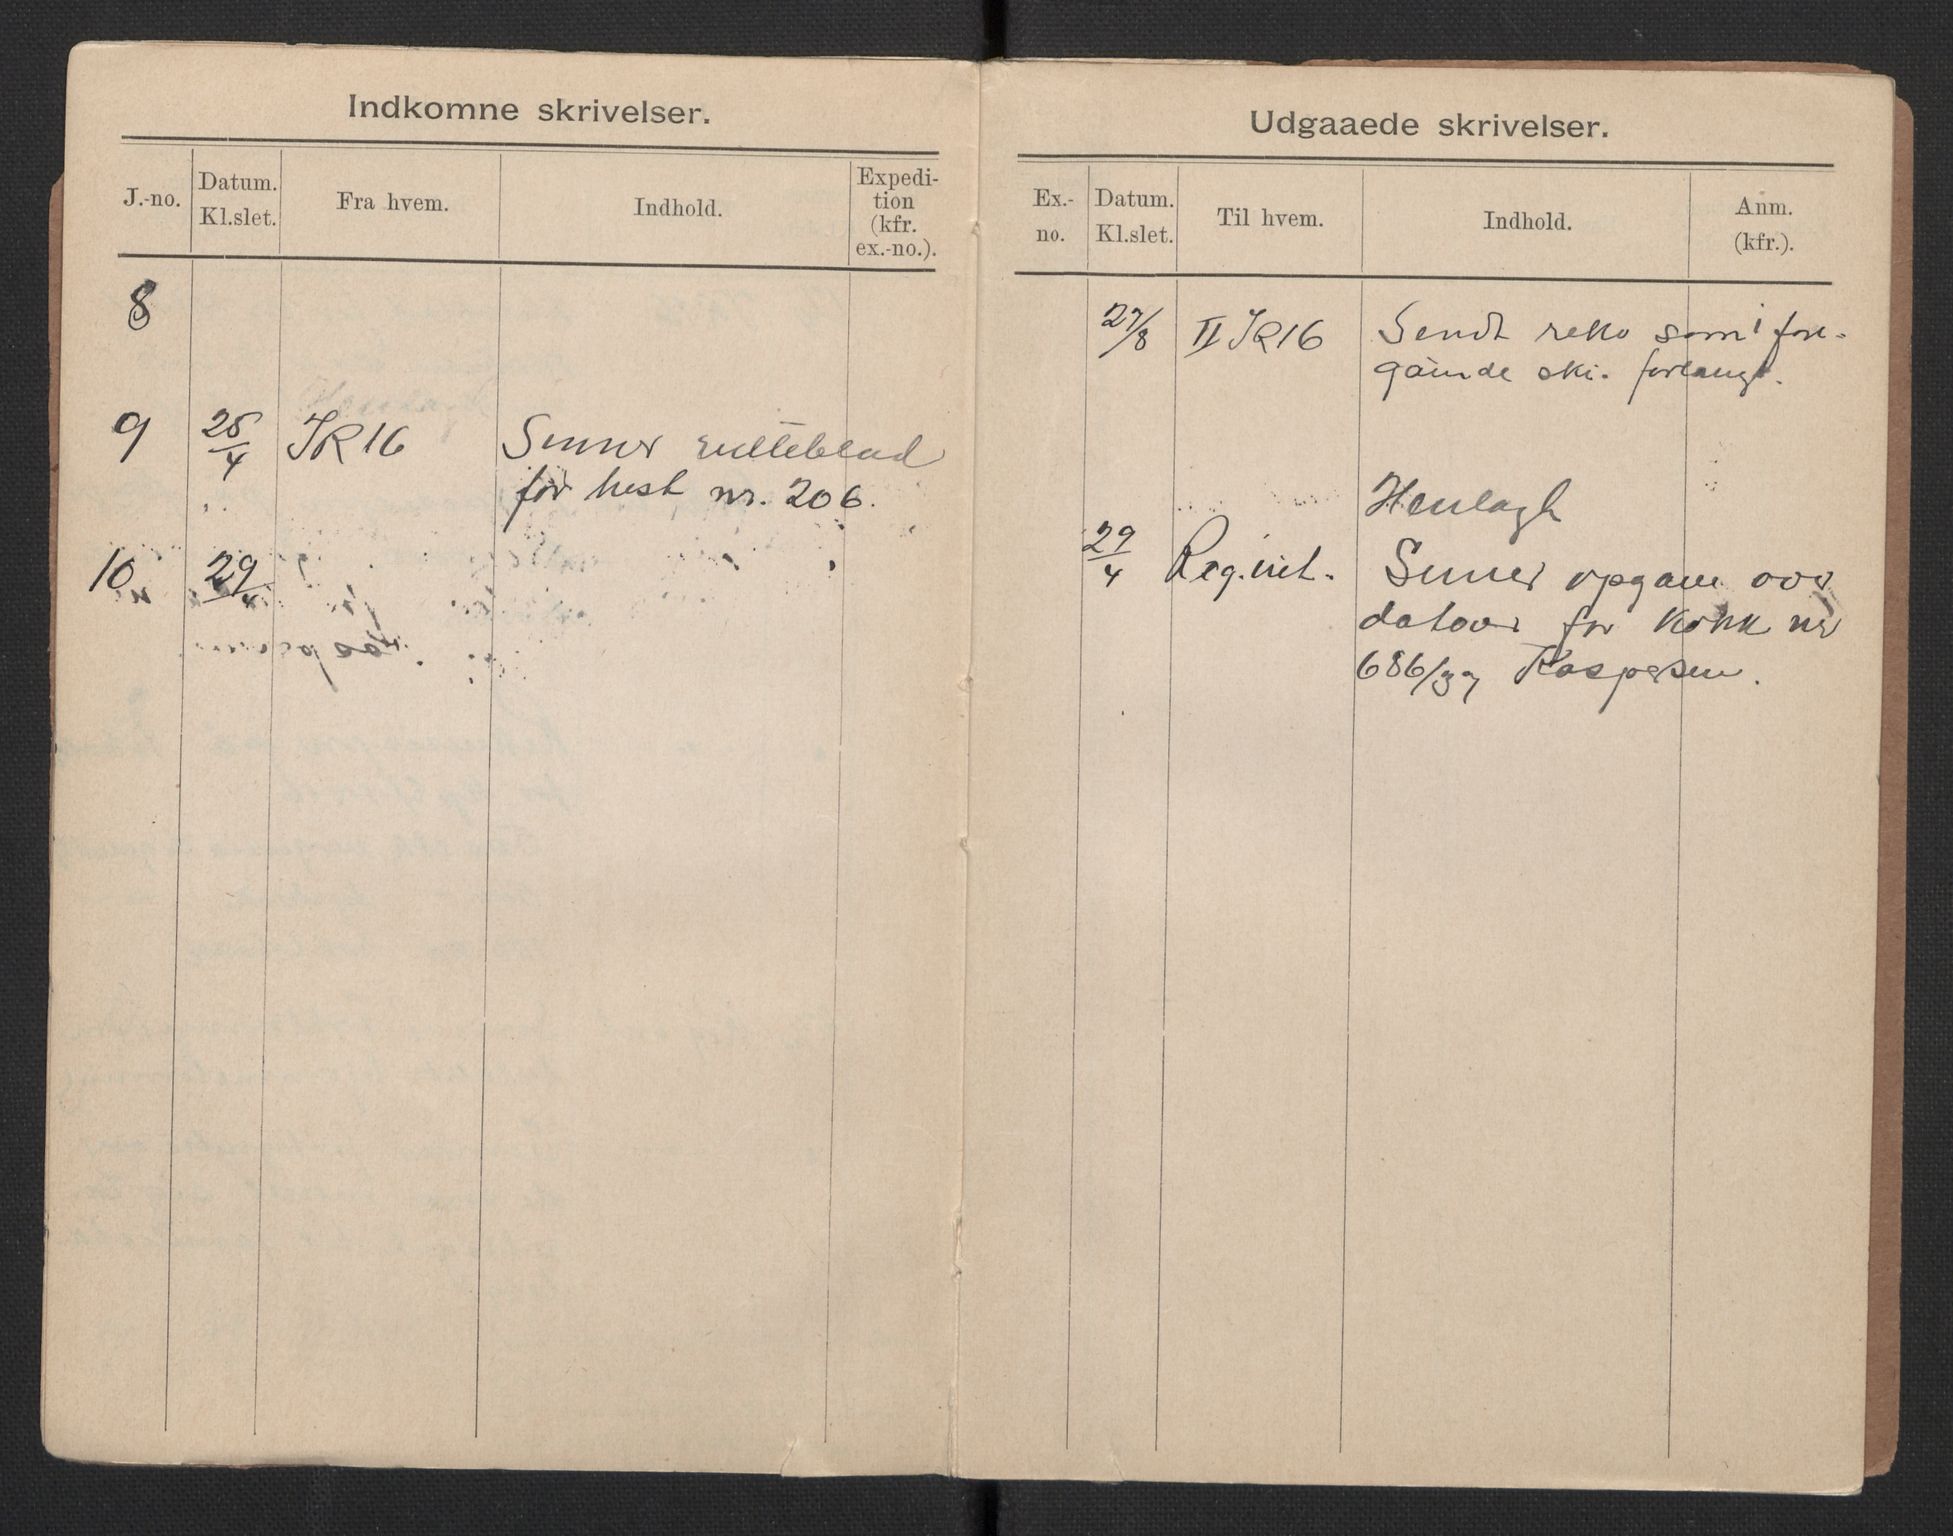 Indkomne skrivelser.
J.-no.
Datum.
Kl.slet.
Fra hvem.
Indhold.
Expedi-
tion
(kfr.
ex.-no.).
8
9 25/4 IR 16 Senner rulleblad
for hest nr. 206.
10 29/4
Udgaaede skrivelser.
Ex.-
no.
Datum.
Kl.slet.
Til hvem.
Indhold.
Anm.
(kfr.).
27/8 II IR 16 Sendt som i fore-
gående skr. forlangt.
Henlagt
29/4 Reg.int. Senner opgave over
datoer for kokk nr
686/37 Kaspersen.